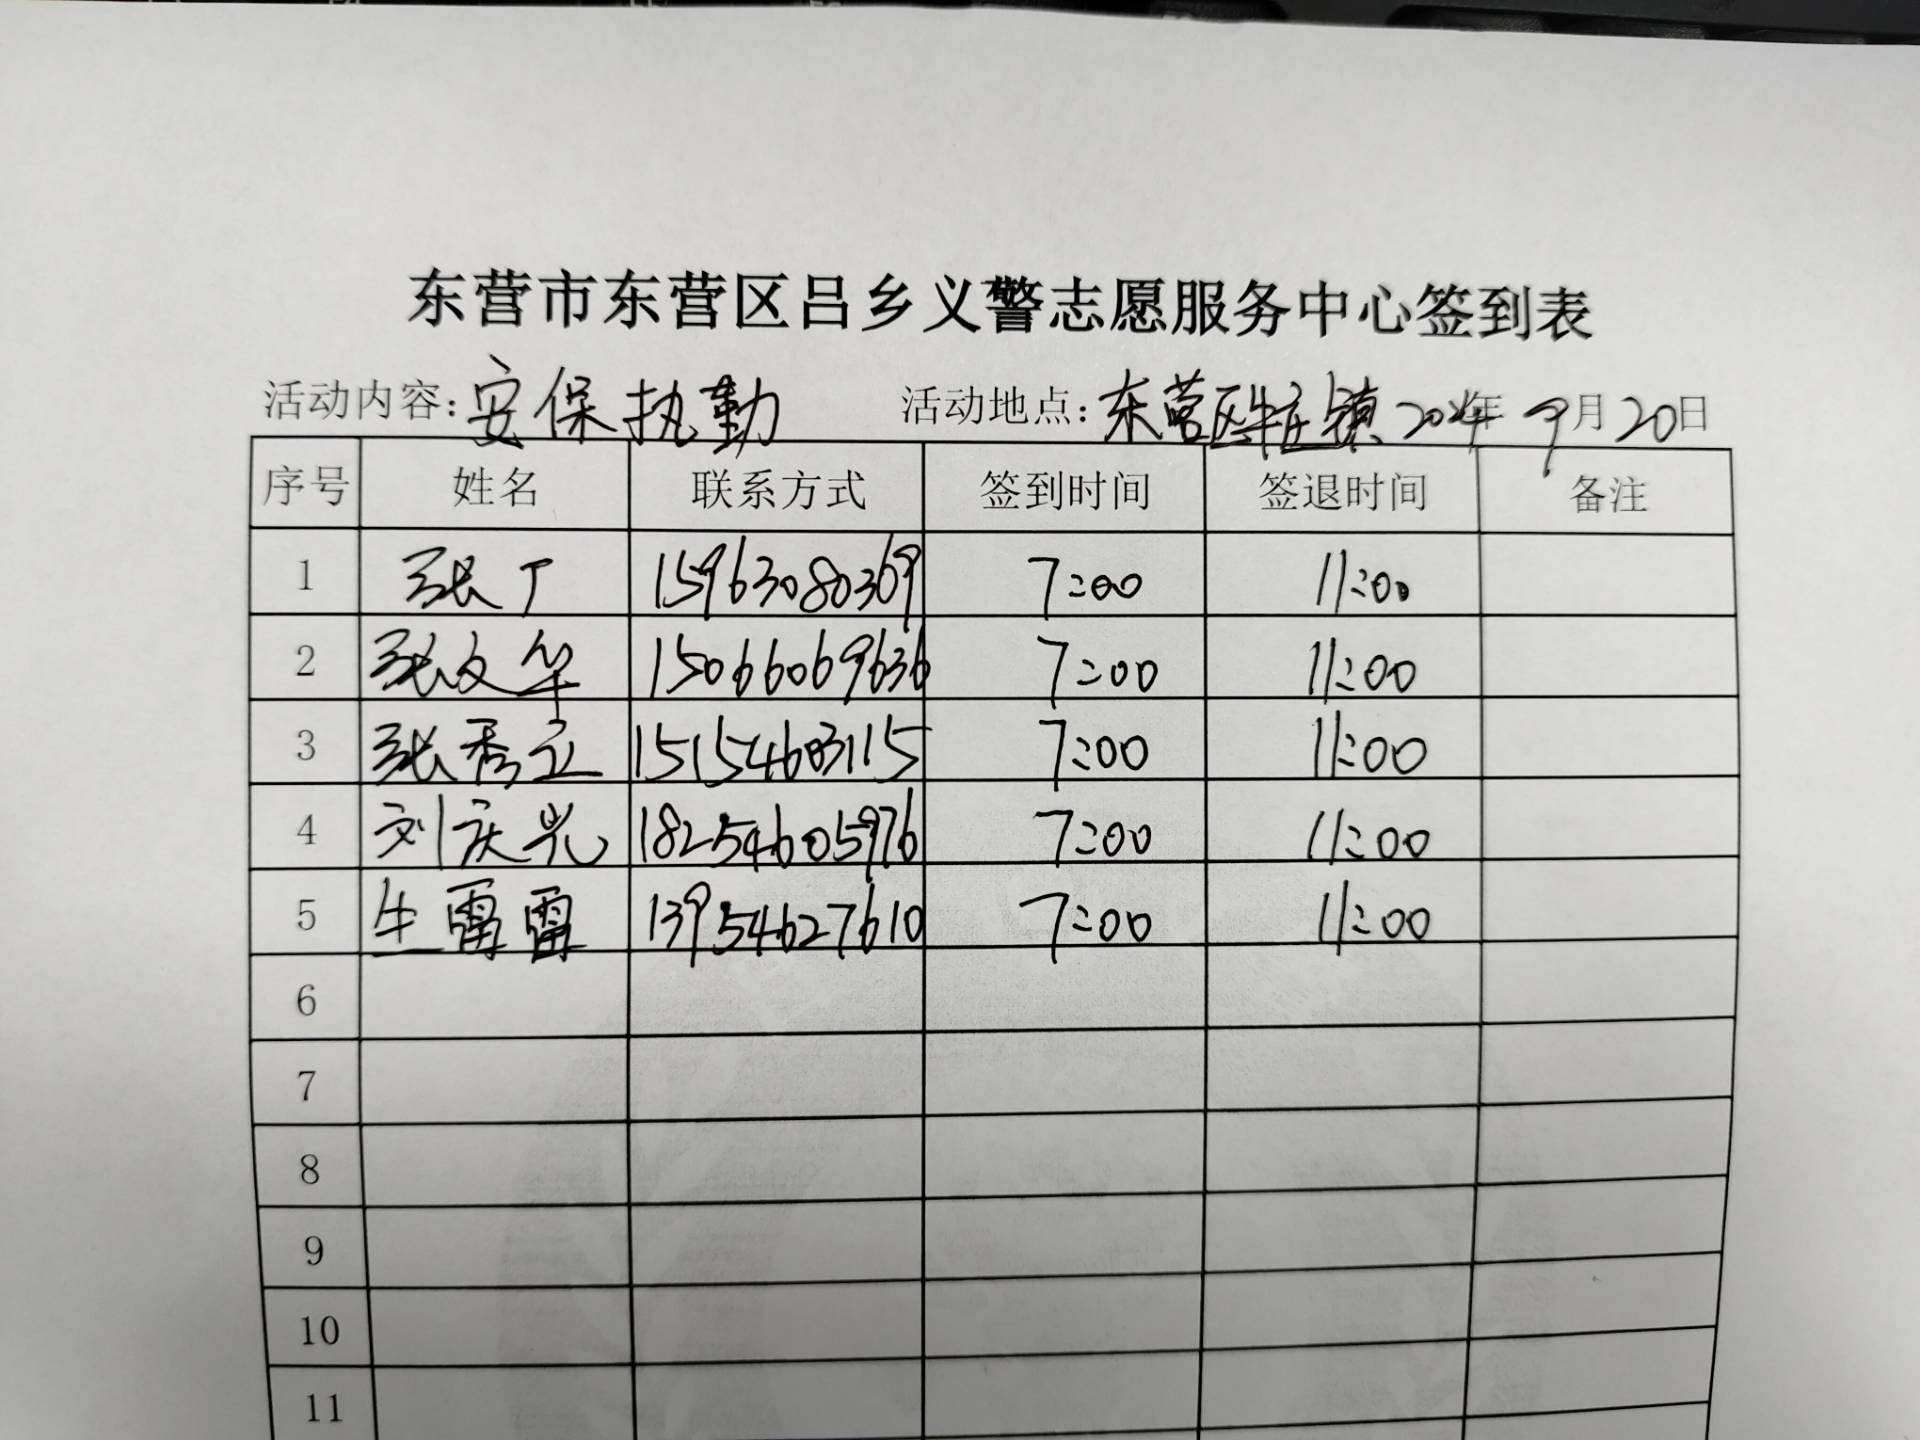 东营市东营区吕乡义警志愿服务中心签到表
活动内容：安保执勤 活动地点：东营区牛庄镇 2024年 9月20日
序号 姓名 联系方式 签到时间 签退时间 备注
1 张丁 15963080369 7:00 11:00
2 张文华 15066069636 7:00 11:00
3 张秀立 15154603115 7:00 11:00
4 刘庆光 18254605976 7:00 11:00
5 生雷雷 13954627610 7:00 11:00
6
7
8
9
10
11